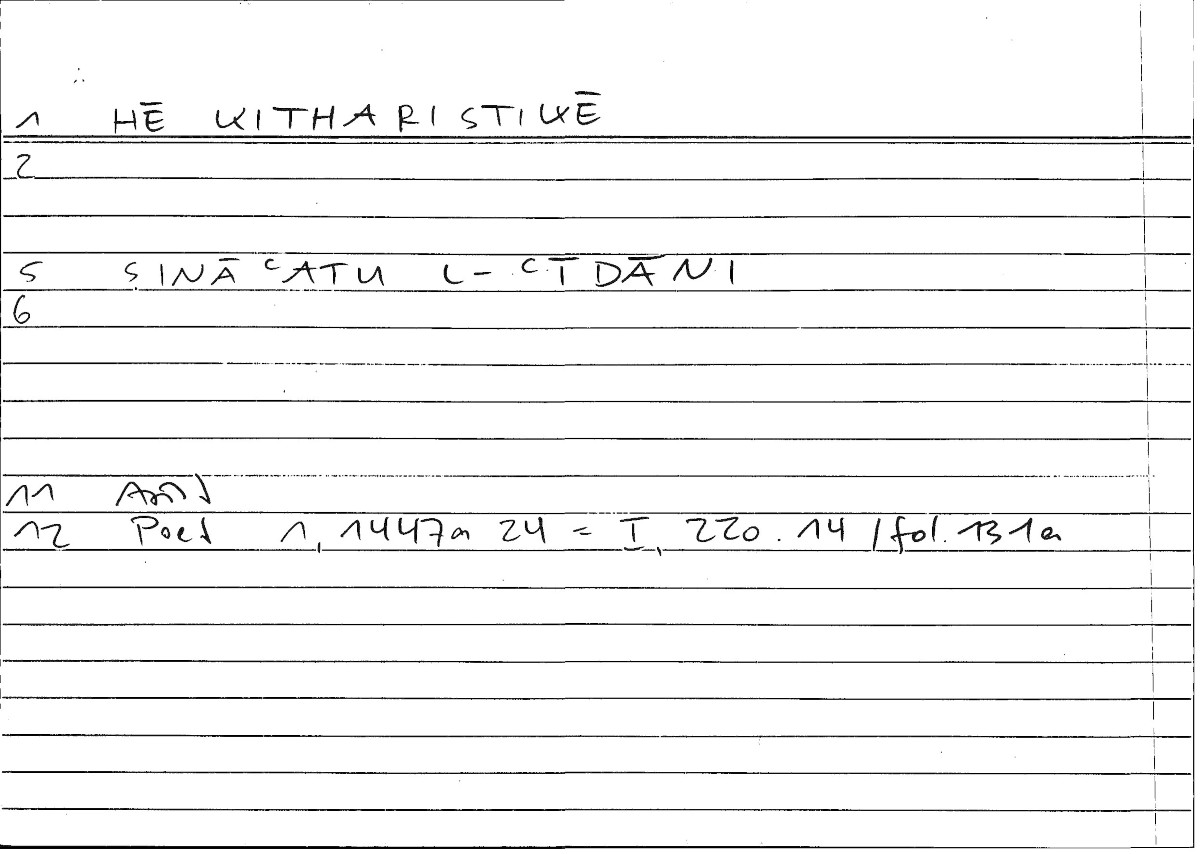 1 HĒ KITHARISTIKĒ
2
5 SINĀʿATU L-ʿĪDĀNI
6
11 Arist
12 Poet 1, 1447a 24 = I, 220.14 / fol. 131a